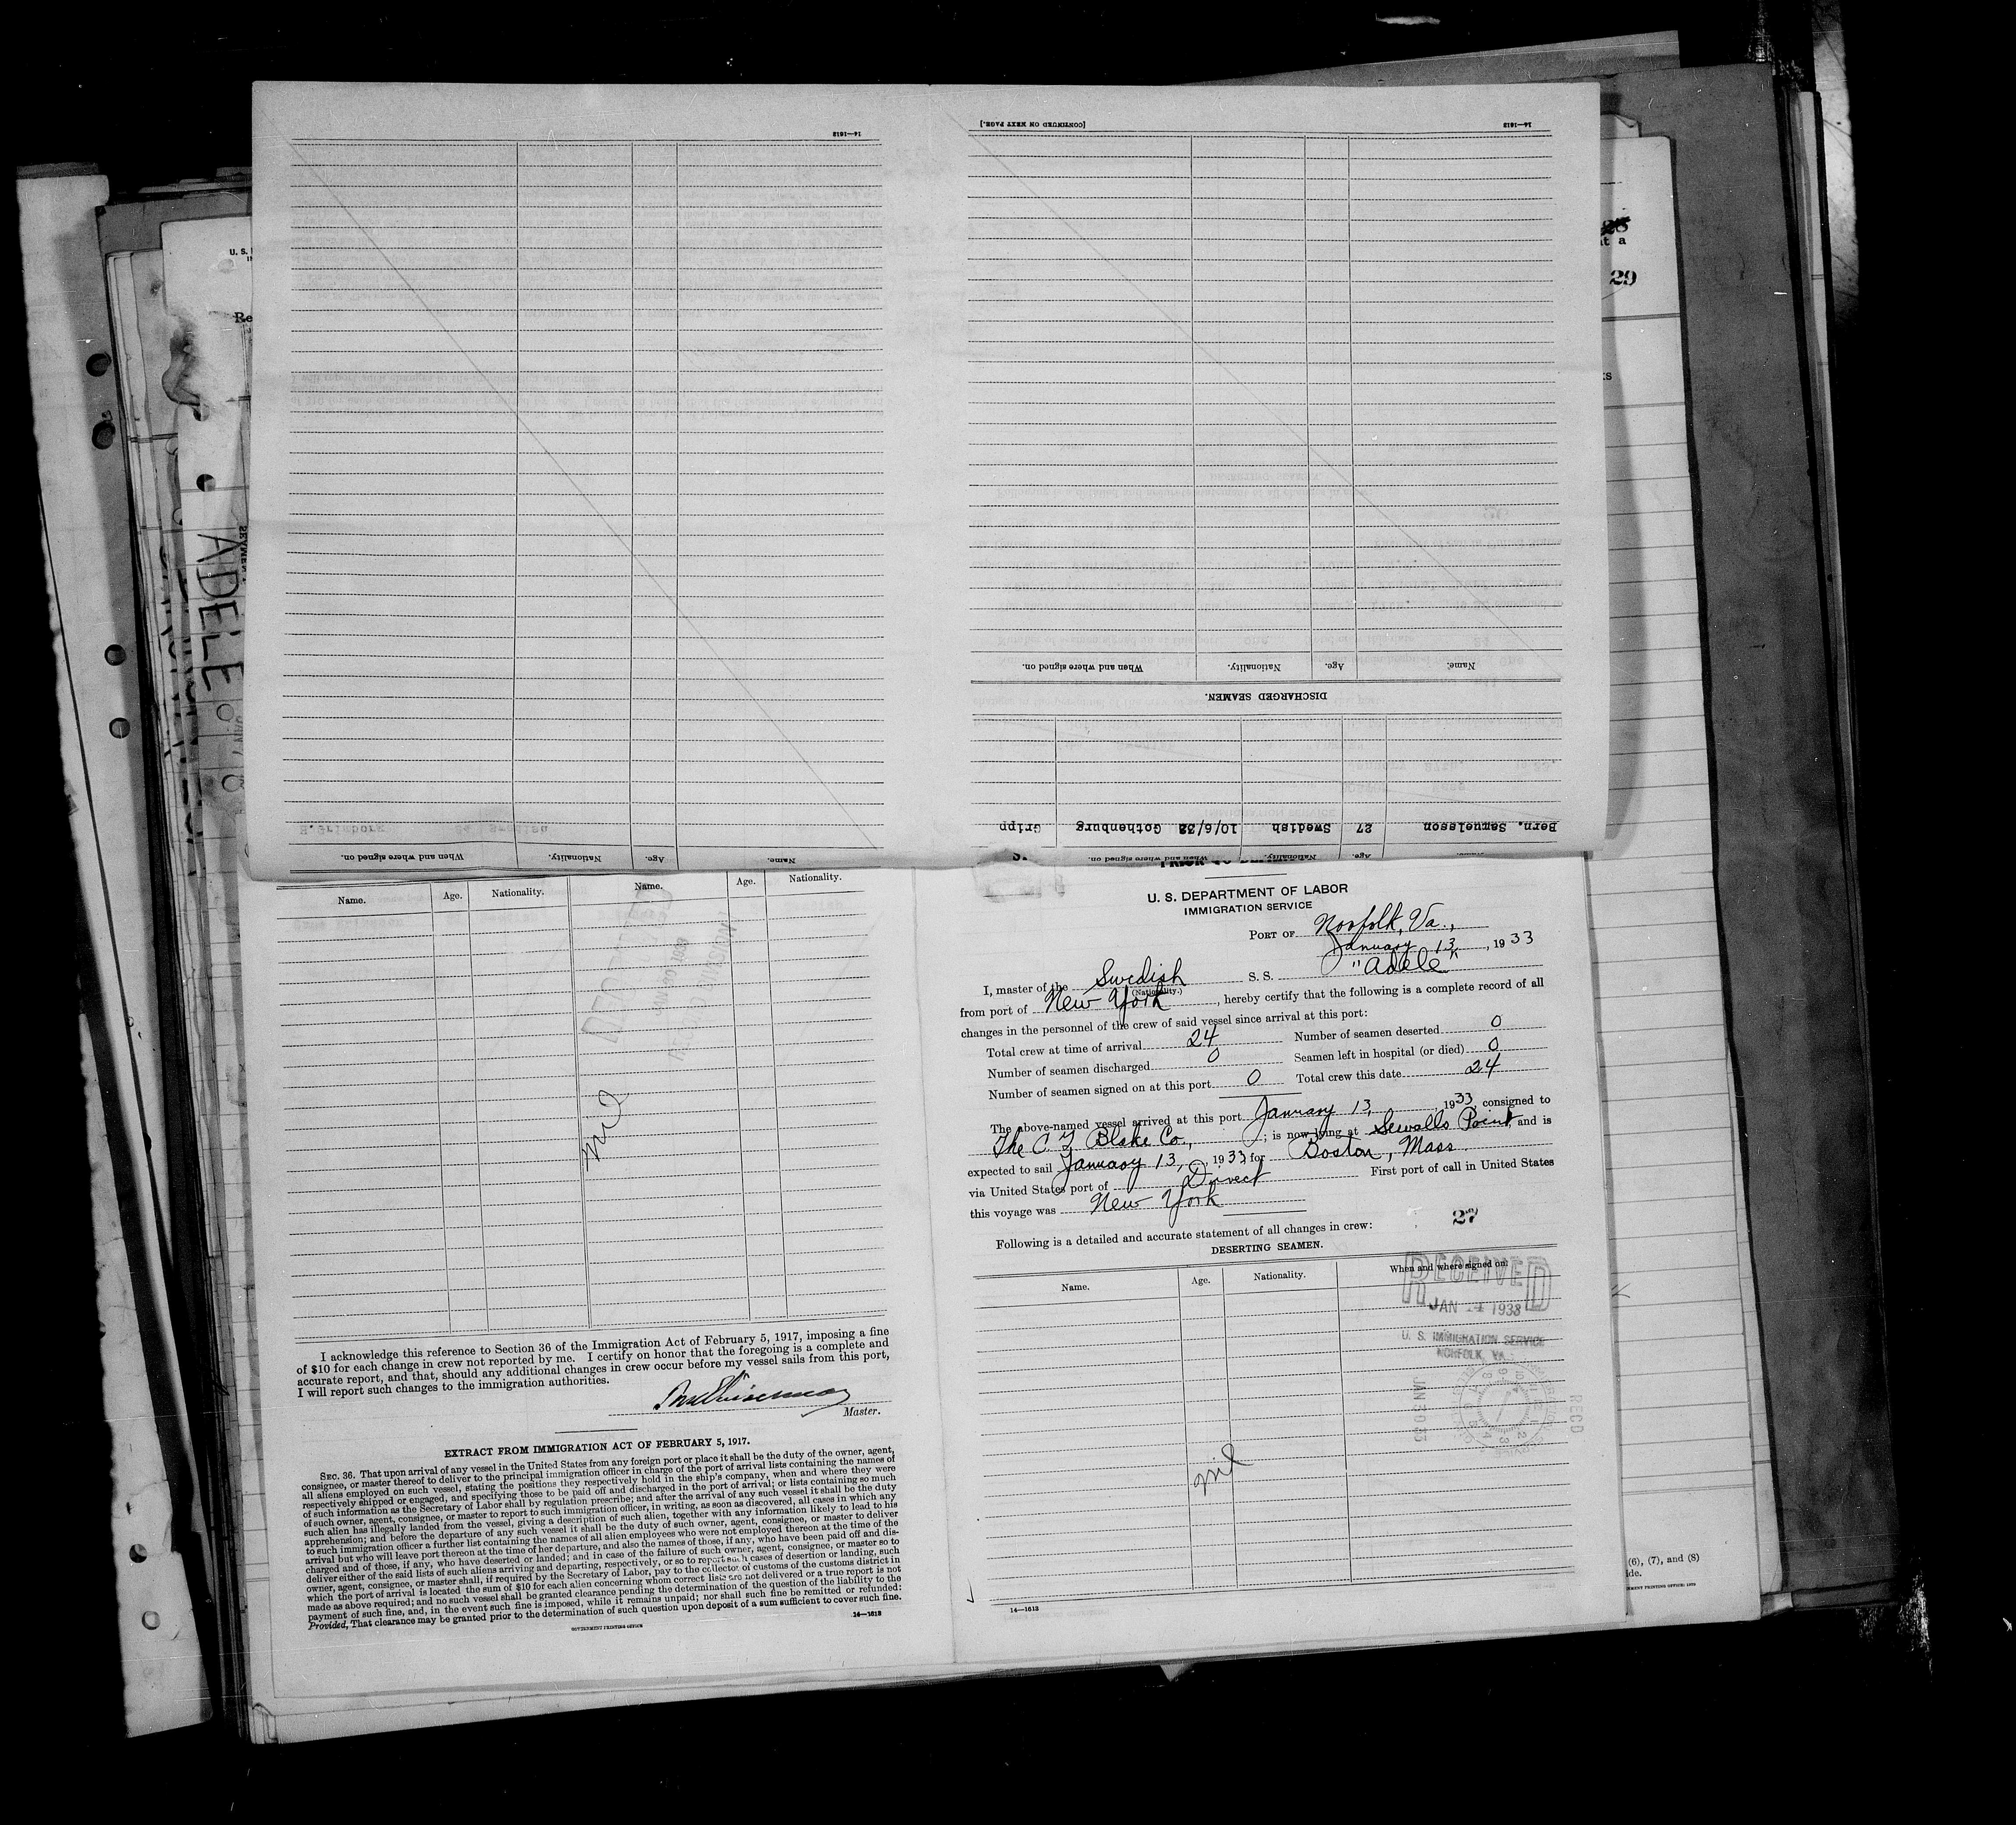 14—1613
[CONTINUED ON NEXT PAGE.]
14—1613
Name. Age. Nationality. When and where signed on.
DISCHARGED SEAMEN.
Bern. Samuelsson 27 Swedish 10/6/32 Gothenburg Gripp
Name. Age. Nationality. When and where signed on.
Name. Age. Nationality. When and where signed on.
ADELE
29
Name. Age. Nationality. Name. Age. Nationality.
nil
I acknowledge this reference to Section 36 of the Immigration Act of February 5, 1917, imposing a fine
of $10 for each change in crew not reported by me. I certify on honor that the foregoing is a complete and
accurate report, and that, should any additional changes in crew occur before my vessel sails from this port,
I will report such changes to the immigration authorities.
Master.
EXTRACT FROM IMMIGRATION ACT OF FEBRUARY 5, 1917.
SEC. 36. That upon arrival of any vessel in the United States from any foreign port or place it shall be the duty of the owner, agent,
consignee, or master thereof to deliver to the principal immigration officer in charge of the port of arrival lists containing the names of
all aliens employed on such vessel, stating the positions they respectively hold in the ship's company, when and where they were
respectively shipped or engaged, and specifying those to be paid off and discharged in the port of arrival; or lists containing so much
of such information as the Secretary of Labor shall by regulation prescribe; and after the arrival of any such vessel it shall be the duty
of such owner, agent, consignee, or master to report to such immigration officer, in writing, as soon as discovered, all cases in which any
such alien has illegally landed from the vessel, giving a description of such alien, together with any information likely to lead to his
apprehension; and before the departure of any such vessel it shall be the duty of such owner, agent, consignee, or master to deliver
to such immigration officer a further list containing the names of all alien employees who were not employed thereon at the time of the
arrival but who will leave port thereon at the time of her departure, and also the names of those, if any, who have been paid off and dis-
charged and of those, if any, who have deserted or landed; and in case of the failure of such owner, agent, consignee, or master so to
deliver either of the said lists of such aliens arriving and departing, respectively, or so to report such cases of desertion or landing, such
owner, agent, consignee, or master shall, if required by the Secretary of Labor, pay to the collector of customs of the customs district in
which the port of arrival is located the sum of $10 for each alien concerning whom correct lists are not delivered or a true report is not
made as above required; and no such vessel shall be granted clearance pending the determination of the question of the liability to the
payment of such fine, and, in the event such fine is imposed, while it remains unpaid; nor shall such fine be remitted or refunded:
Provided, That clearance may be granted prior to the determination of such question upon deposit of a sum sufficient to cover such fine.
GOVERNMENT PRINTING OFFICE
14—1613
U. S. DEPARTMENT OF LABOR
IMMIGRATION SERVICE
PORT OF Norfolk, Va.,
January 13, 1933
I, master of the Swedish S. S. "Adele"
(Nationality.)
from port of New York, hereby certify that the following is a complete record of all
changes in the personnel of the crew of said vessel since arrival at this port:
Total crew at time of arrival 24 Number of seamen deserted 0
Number of seamen discharged 0 Seamen left in hospital (or died) 0
Number of seamen signed on at this port 0 Total crew this date 24
The above-named vessel arrived at this port January 13, 1933, consigned to
The C G Blake Co., ; is now lying at Sewalls Point, and is
expected to sail January 13, 1933, for Boston, Mass.
via United States port of Direct First port of call in United States
this voyage was New York
Following is a detailed and accurate statement of all changes in crew: 27
DESERTING SEAMEN.
Name. Age. Nationality. When and where signed on.
RECEIVED
JAN 14 1933
U. S. IMMIGRATION SERVICE
NORFOLK, VA.
RECD
nil
14—1613
(6), (7), and (8)